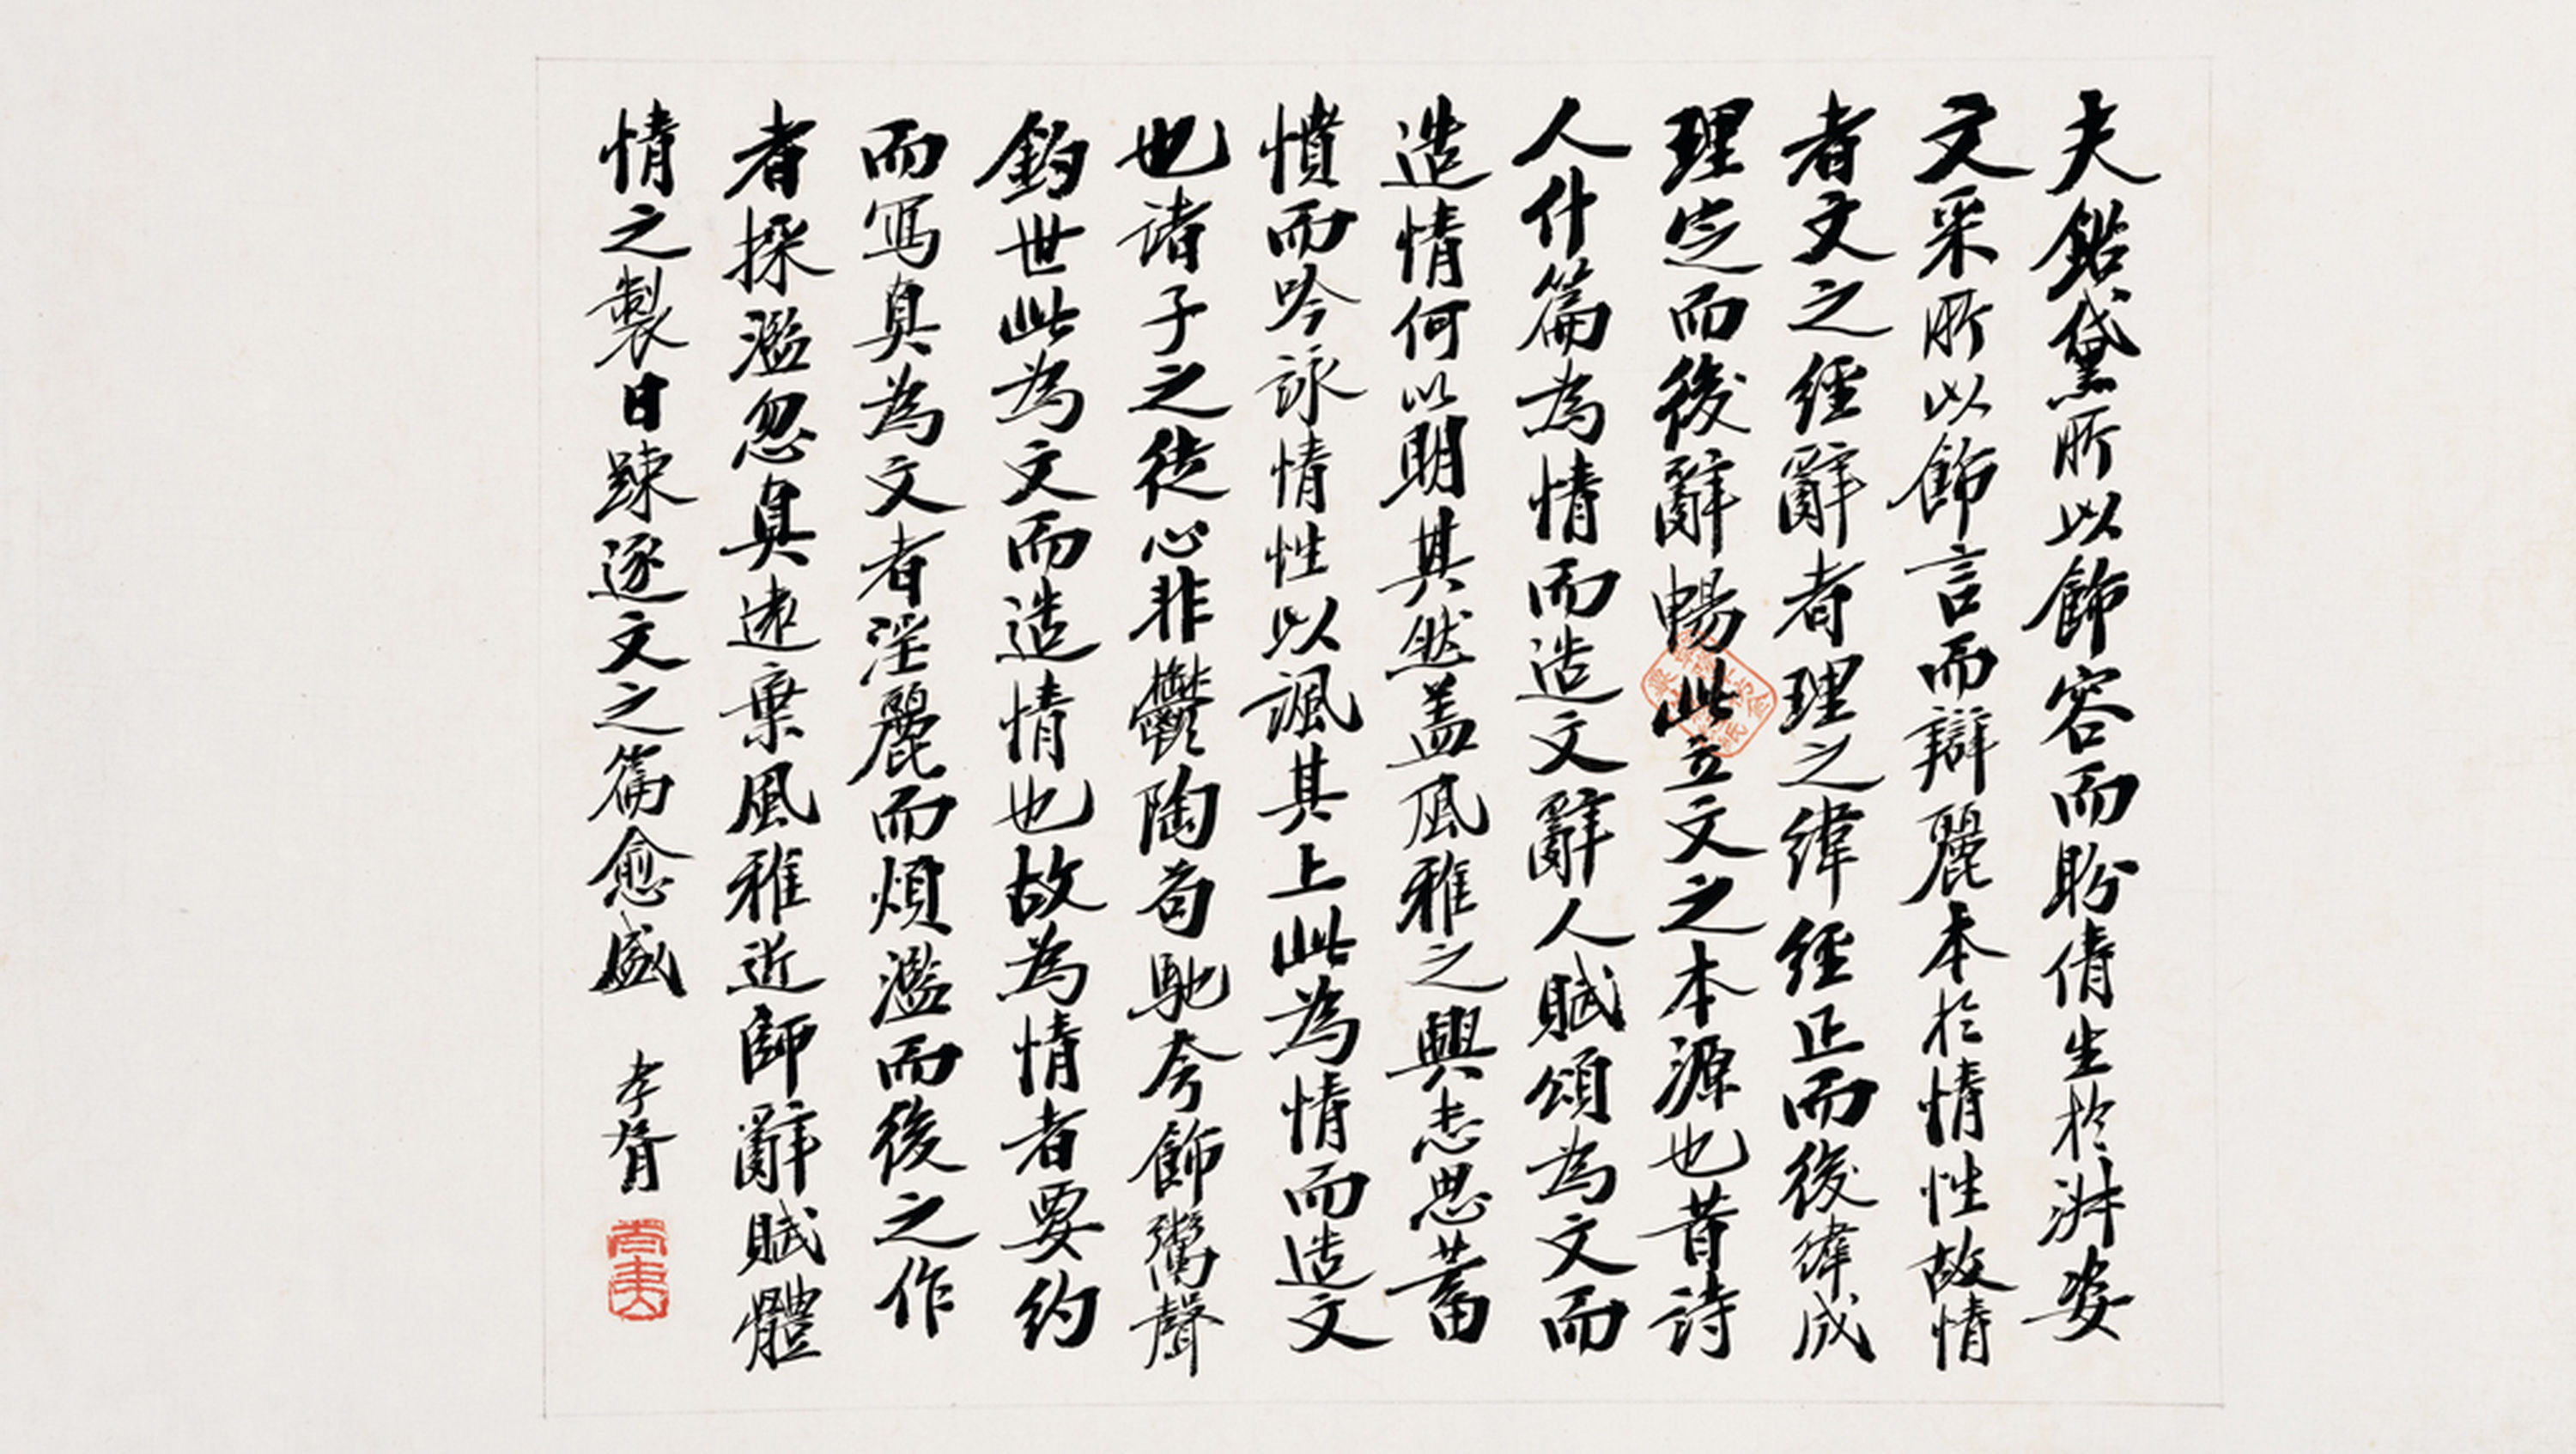 夫鉛黛所以飾容而盼倩生於淑姿
文采所以飾言而辯麗本於情性故情
者文之經辭者理之緯經正而後緯成
理定而後辭暢此立文之本源也昔詩
人什篇為情而造文辭人賦頌為文而
造情何以明其然蓋風雅之興志思蓄
憤而吟詠情性以諷其上此為情而造文
也諸子之徒心非鬱陶苟馳夸飾鬻聲
釣世此為文而造情也故為情者要約
而寫真為文者淫麗而煩濫而後之作
者採濫忽真遠棄風雅近師辭賦體
情之製日疎逐文之篇愈盛 孝胥